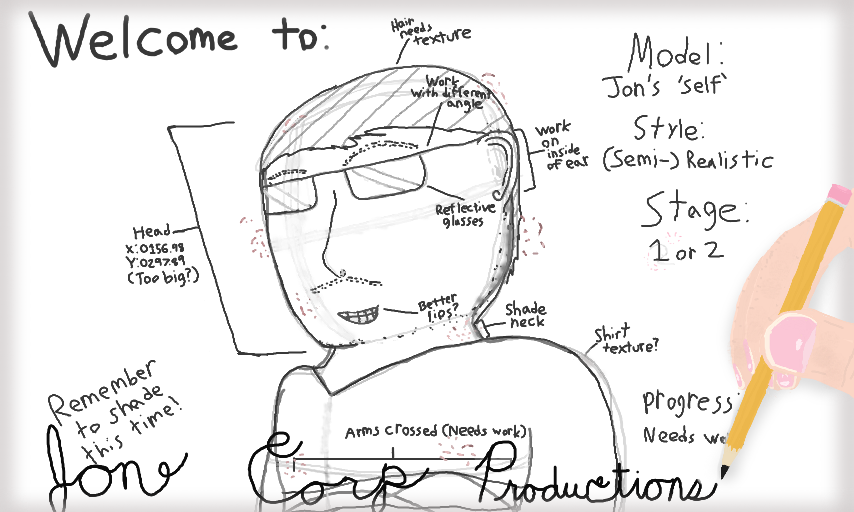 Welcome to:
Hair
needs
texture
Work
with different
angle
Work
on
inside
of ear
Model:
Jon's 'self'
Style:
(Semi-) Realistic
Stage:
1 or 2
Head
X:0156.98
Y:0297.89
(Too big?)
Reflective
glasses
Better
lips?
Shade
neck
Shirt
texture?
Remember
to shade
this time!
progress:
Needs
Arms crossed (Needs work)
Jone Corp Productions